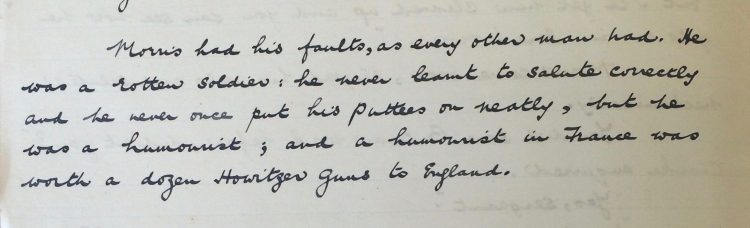 Morris had his faults, as every other man had. He
was a rotten soldier: he never learnt to salute correctly
and he never once put his puttees on neatly, but he
was a humourist; and a humourist in France was
worth a dozen Howitzer Guns to England.